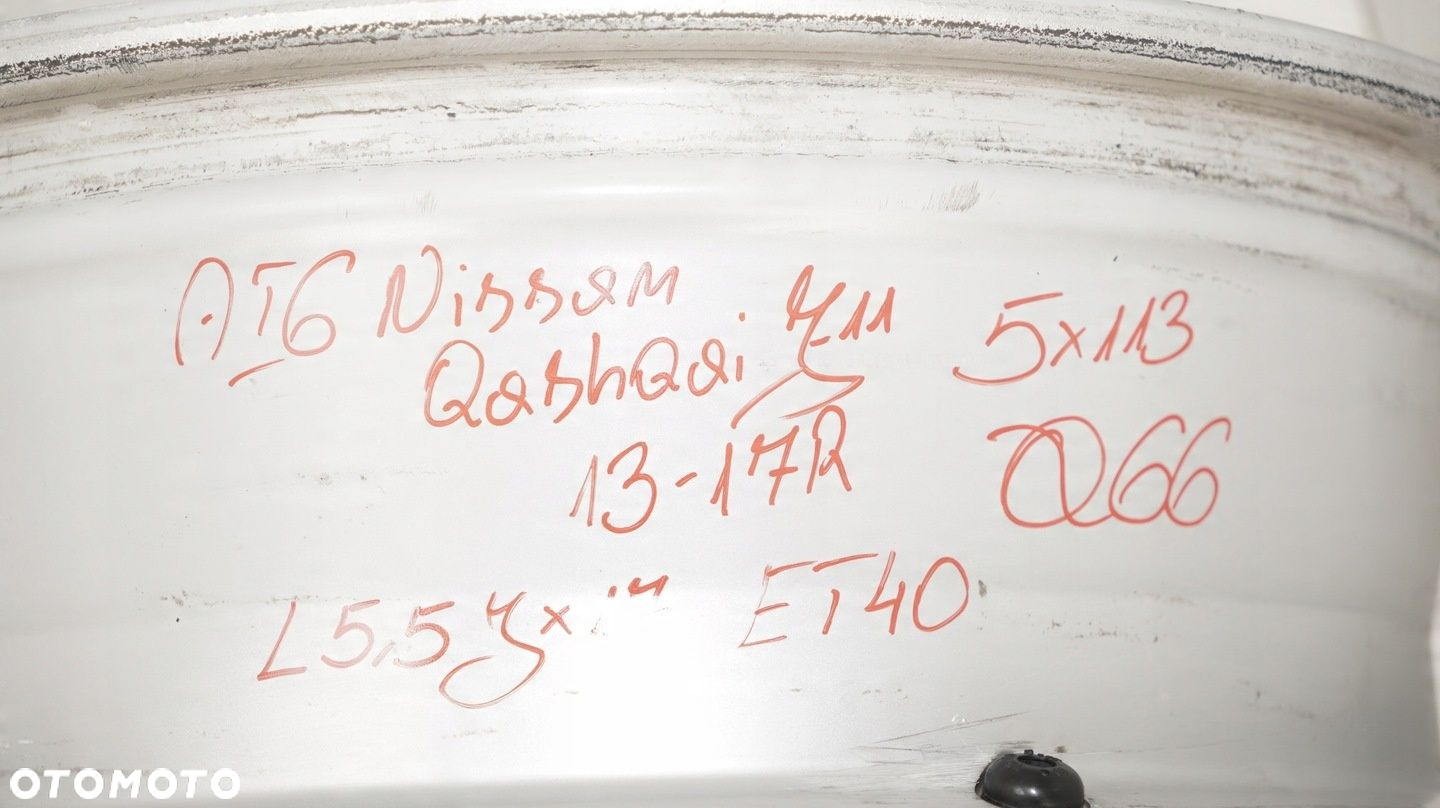 AT6 Nissan
QashQai J11 5x113
13-17R Ø66
L 5,5 J x ET40
OTOMOTO